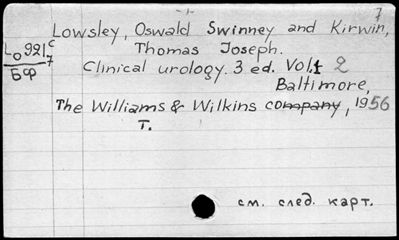 7
Lowsley, Oswald Swinney and Kirwin,
Lo 921 c/7
Бф
Thomas Joseph.
Clinical urology. 3 ed. Vol. 2
Baltimore,
The Williams & Wilkins company, 1956
T.
см. след. карт.